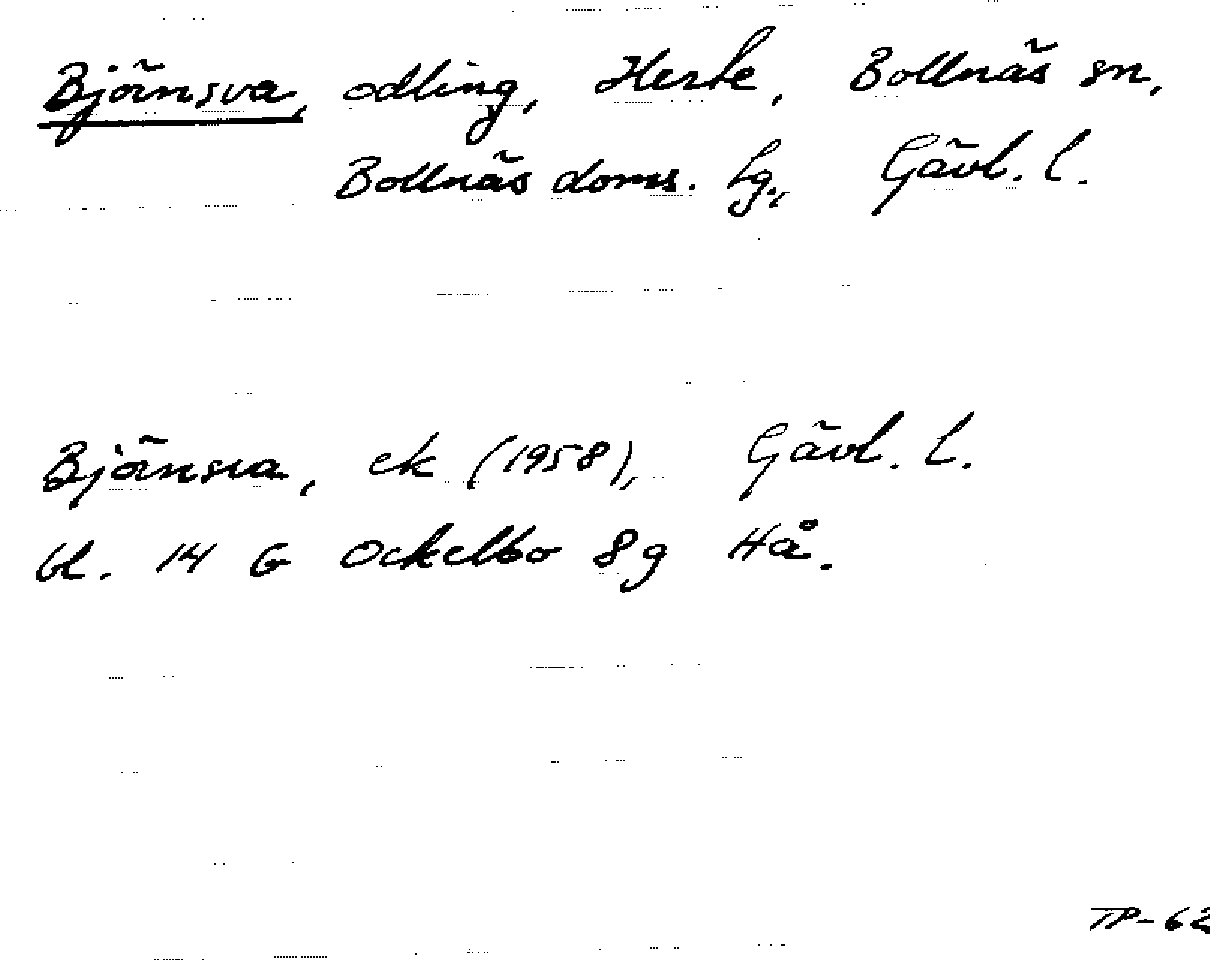 Björnsva, odling, Herte, Bollnäs sn,
Bollnäs doms. lg., Gävl. l.
Björnsva, ek (1958), Gävl. l.
bl. 14 G Ockelbo 8g Hå.
TP-62